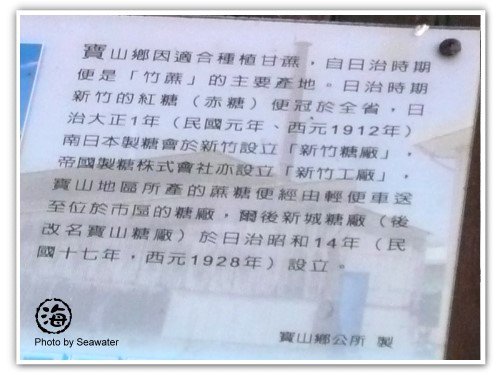 寶山鄉因適合種植甘蔗，自日治時期
便是「竹蔗」的主要產地。日治時期
新竹的紅糖（赤糖）便冠於全省，日
治大正1年（民國元年、西元1912年）
南日本製糖會於新竹設立「新竹糖廠」，
帝國製糖株式會社亦設立「新竹工廠」，
寶山地區所產的蔗糖便經由輕便車送
至位於市區的糖廠，爾後新城糖廠（後
改名寶山糖廠）於日治昭和14年（民
國十七年，西元1928年）設立。
寶山鄉公所 製
海
Photo by Seawater